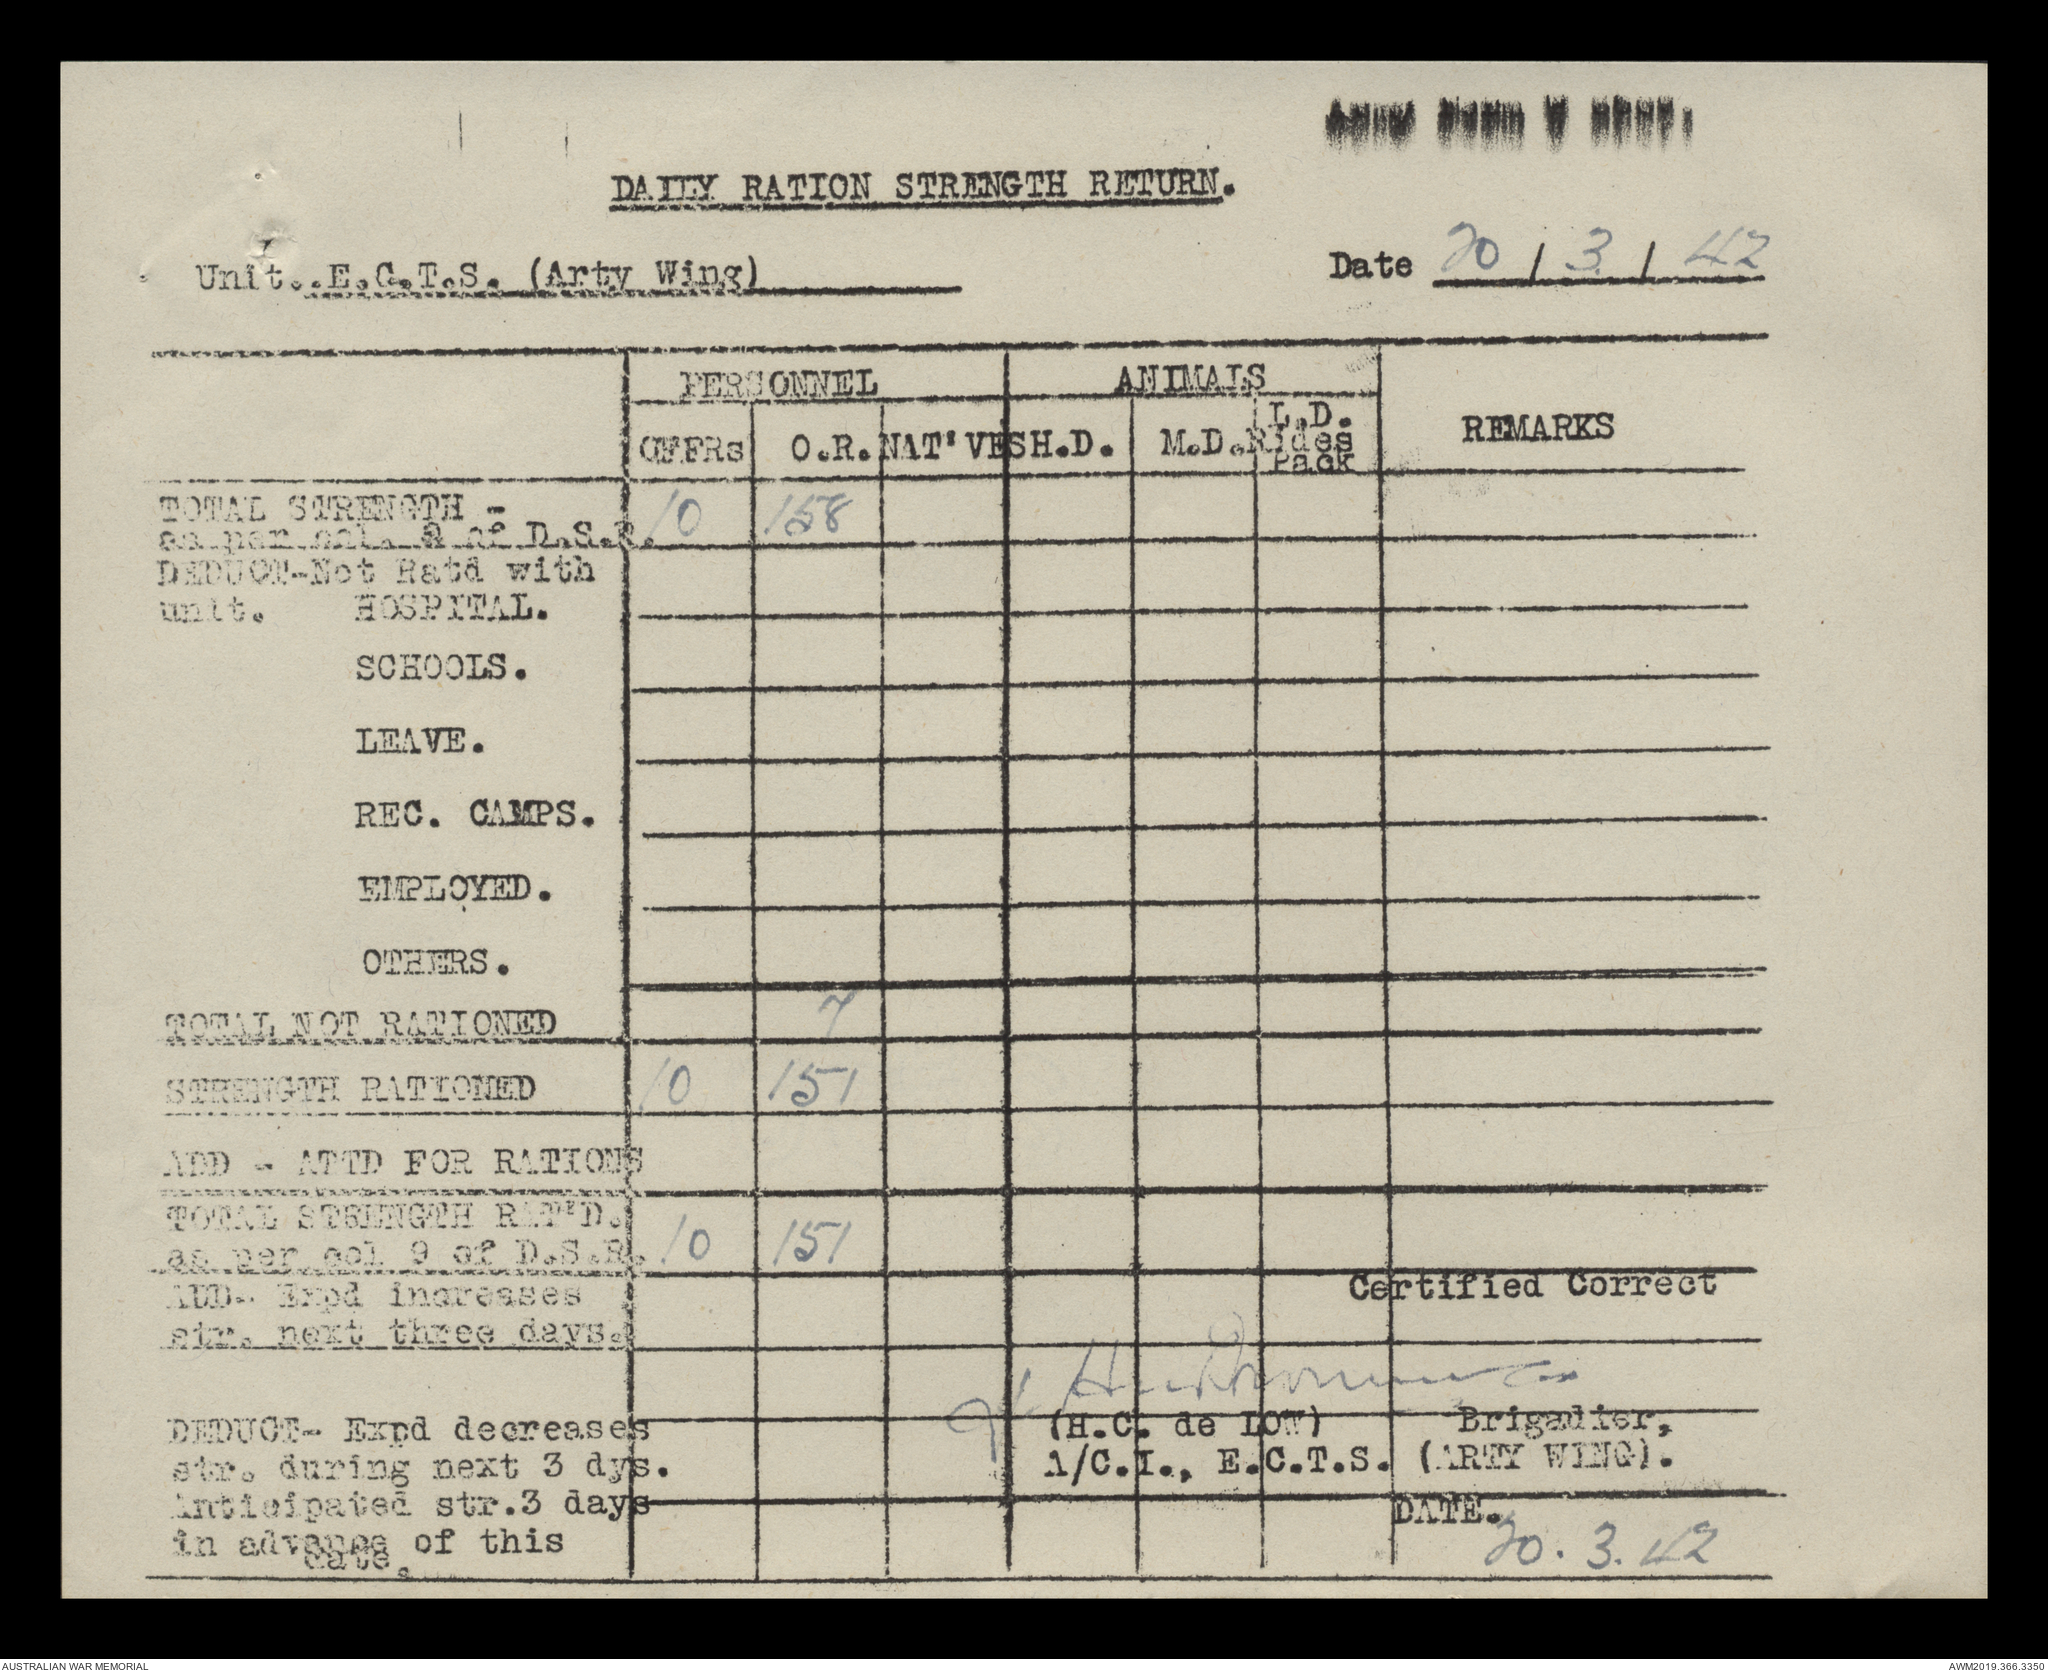 DAILY RATION STRENGTH RETURN.
Unit..E.C.T.S. (Arty Wing)
Date 20 / 3 / 42
PERSONNEL ANIMALS REMARKS
OFFRs O.R. NAT'VES H.D. M.D. L.D. Rides Pack
TOTAL STRENGTH - 10 158
as per col. 8 of D.S.R.
DEDUCT-Not Ratd with
unit. HOSPITAL.
SCHOOLS.
LEAVE.
REC. CAMPS.
EMPLOYED.
OTHERS.
TOTAL NOT RATIONED 7
STRENGTH RATIONED 10 151
ADD - ATTD FOR RATIONS
TOTAL STRENGTH RAT'D. 10 151
as per col 9 of D.S.R.
ADD- Expd increases
str. next three days.
Certified Correct
DEDUCT- Expd decreases
str. during next 3 dys.
Anticipated str.3 days
in advance of this
date.
(H.C. de LOW) Brigadier,
1/C.I., E.C.T.S. (ARTY WING).
DATE.
20.3.42
AUSTRALIAN WAR MEMORIAL
AWM2019.366.3350